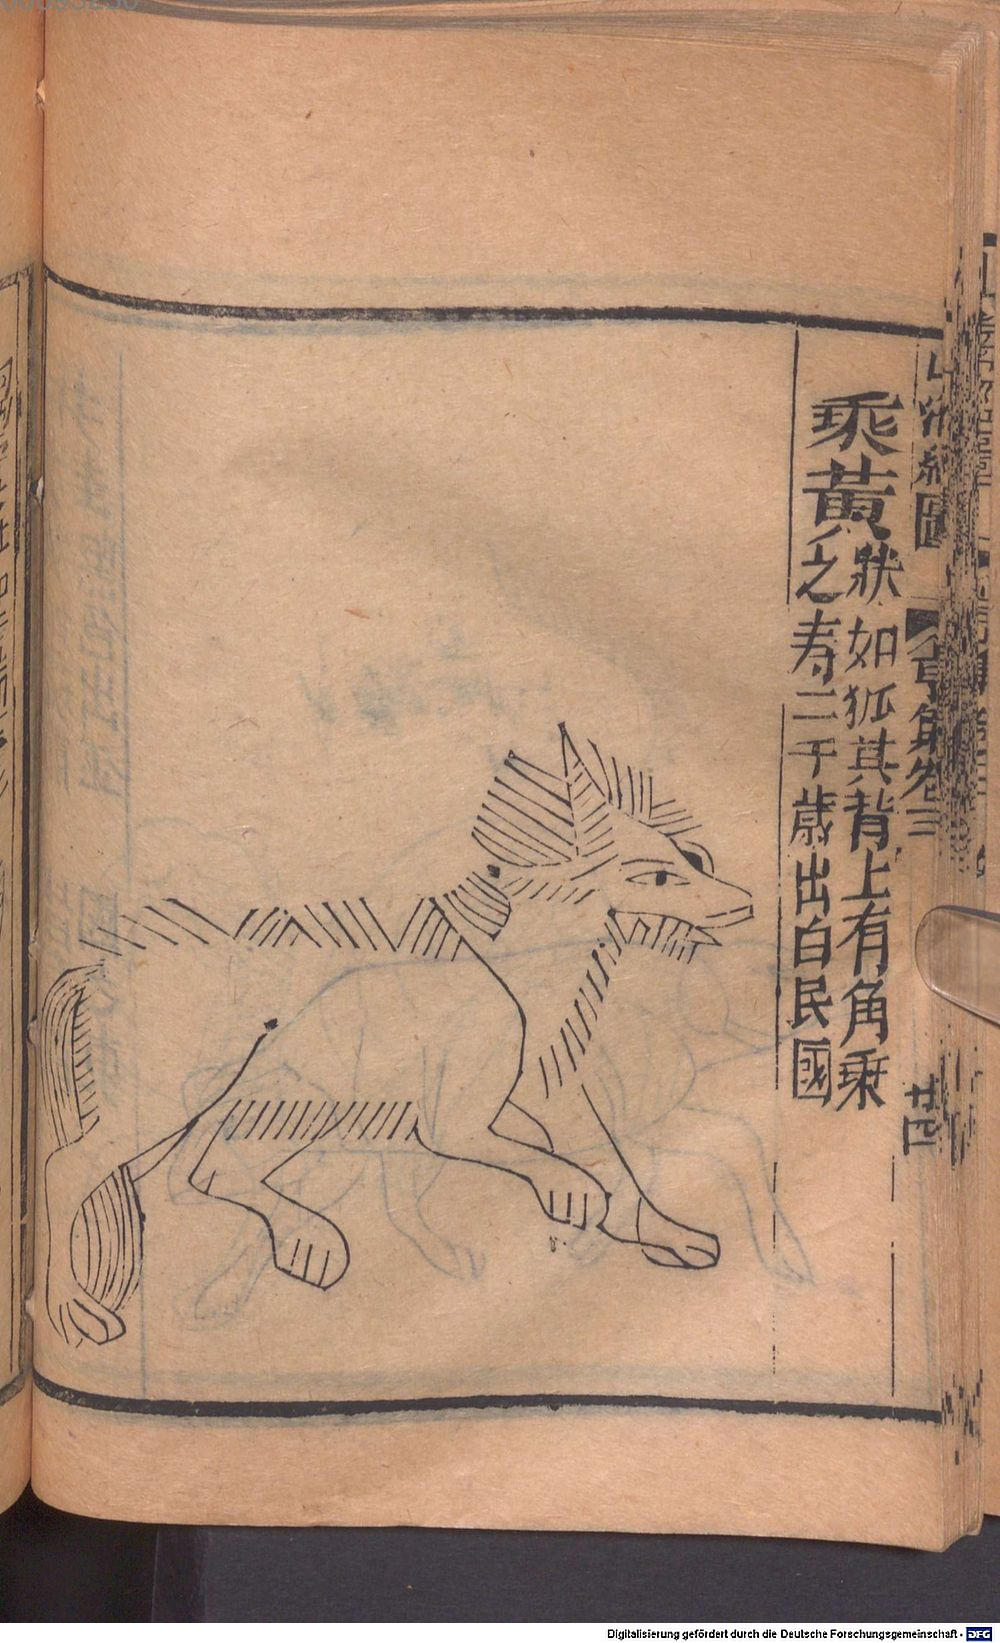 山海經圖
亨集卷三
廿四
乘黃
狀如狐其背上有角乗
之寿二千歲出白民國
Digitalisierung gefördert durch die Deutsche Forschungsgemeinschaft - DFG